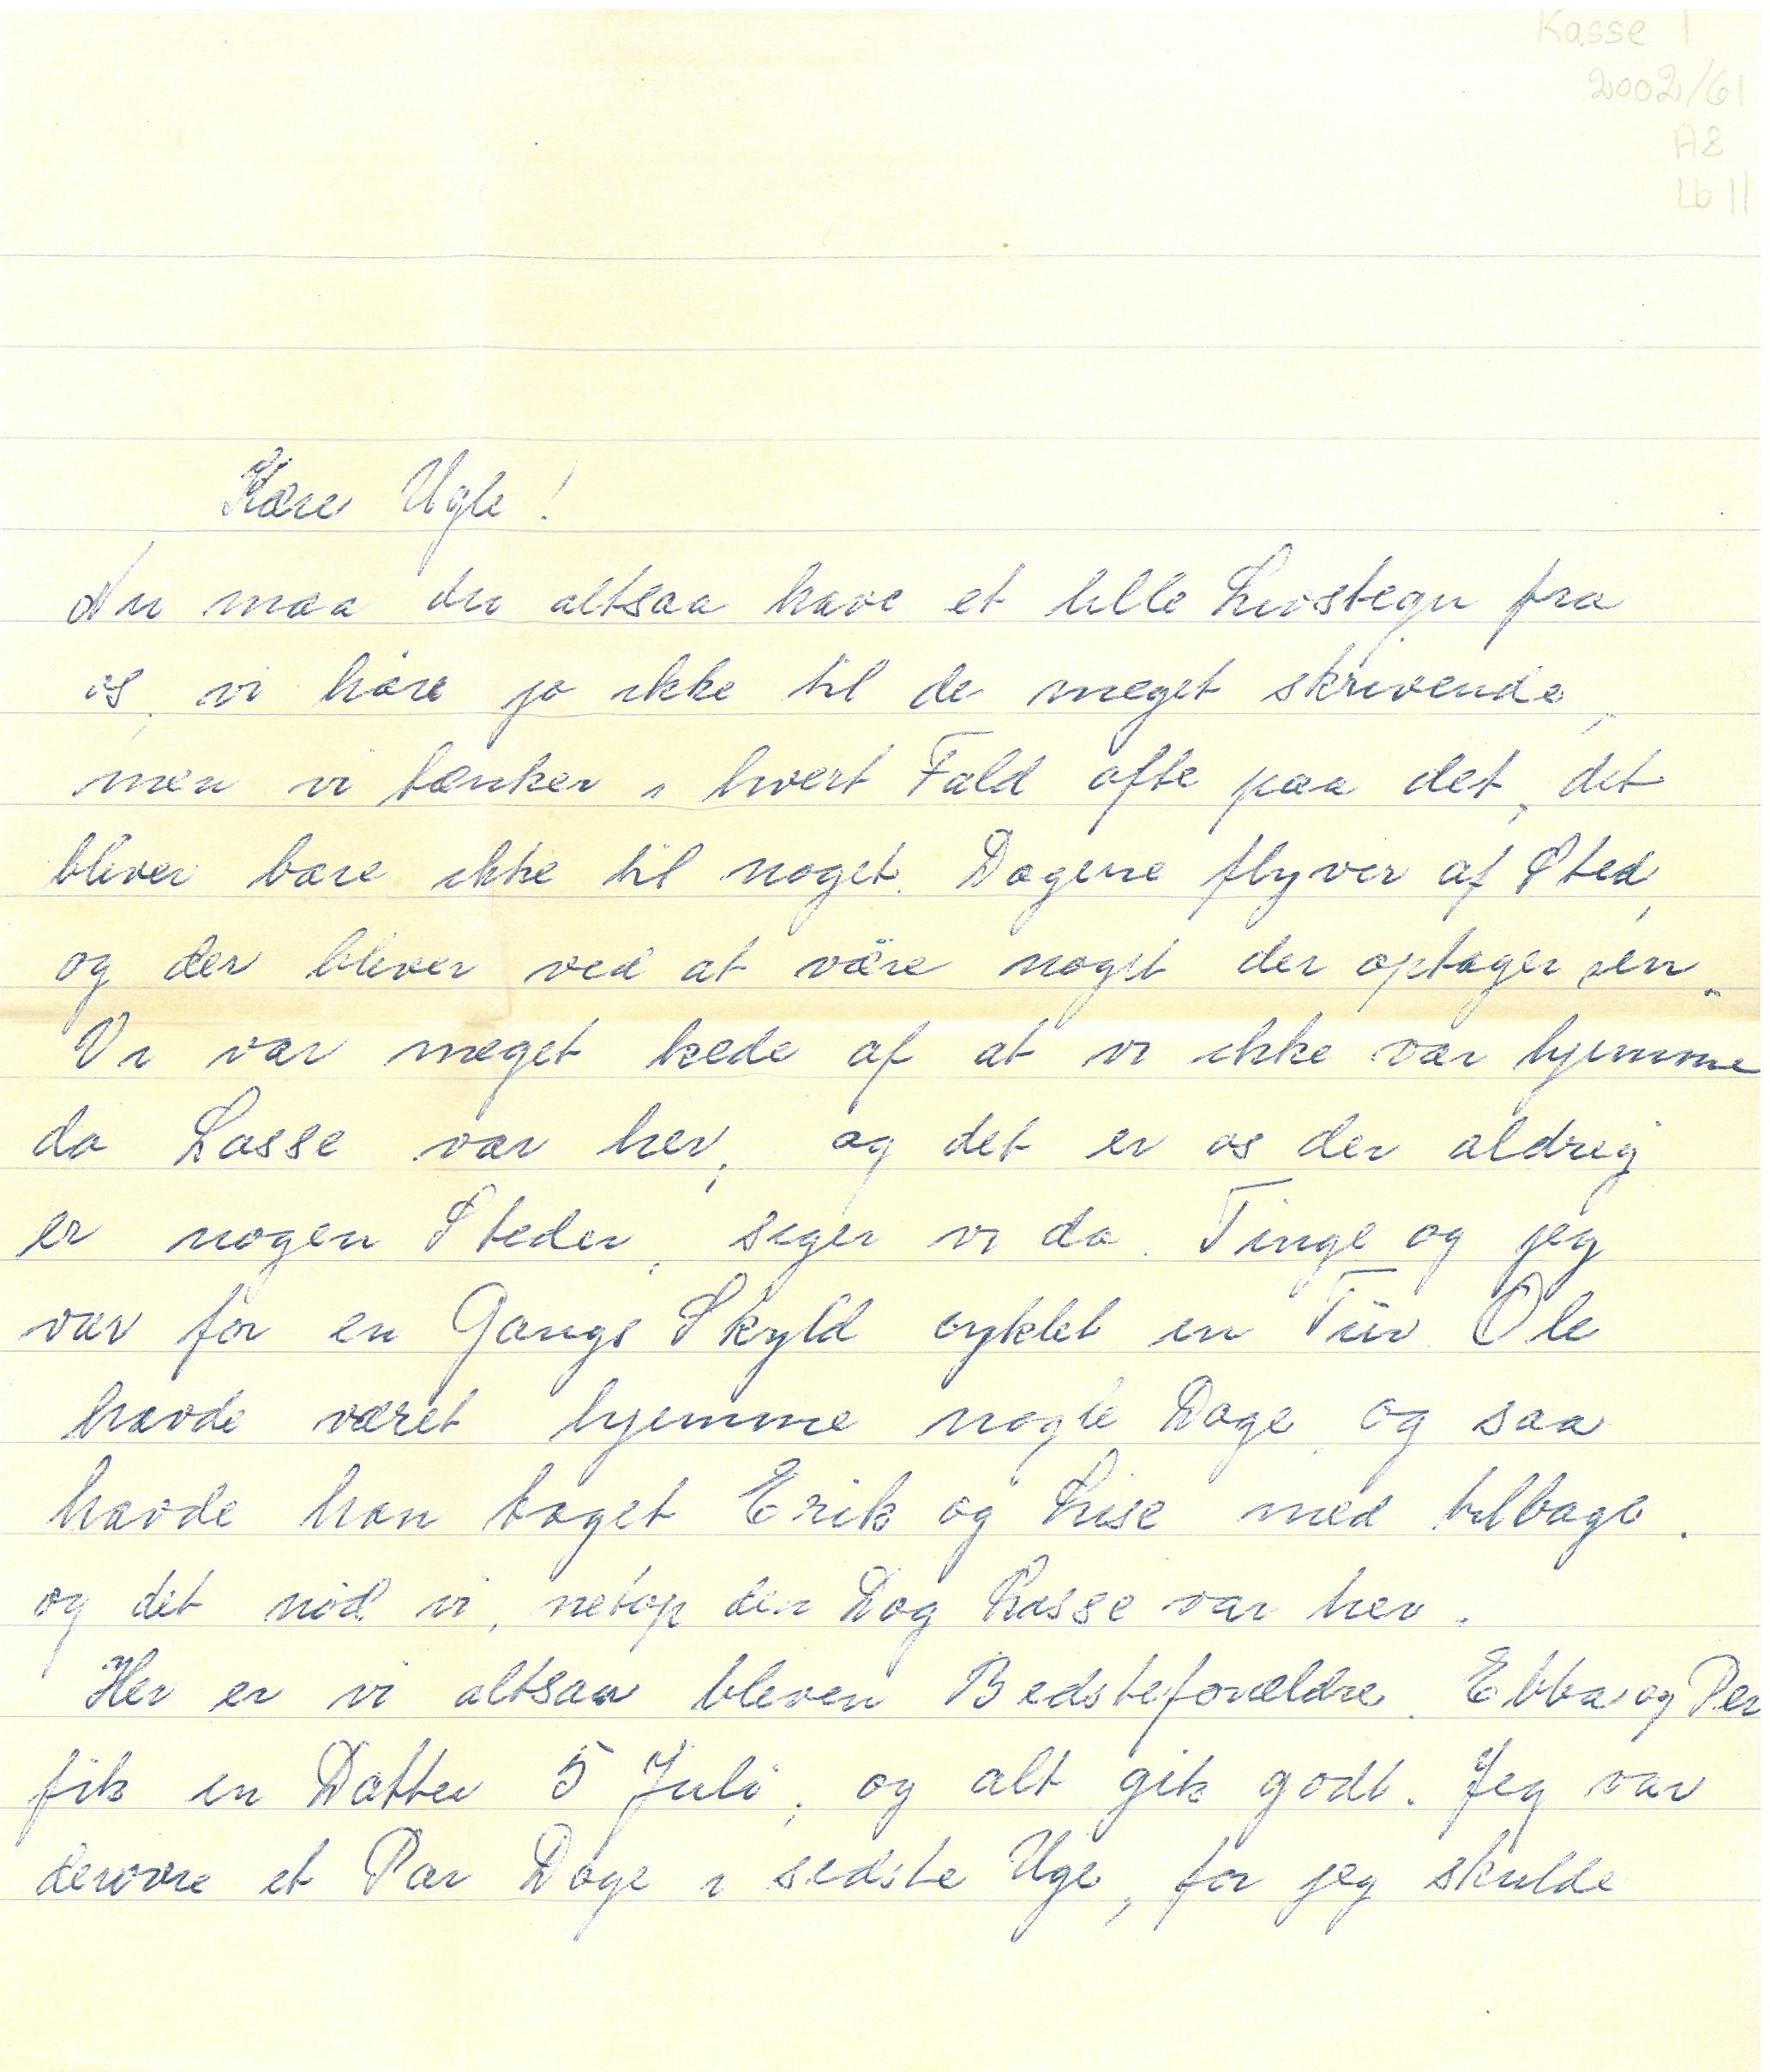 Kasse 1
2002/61
A8
Lb 11
Kære Ugle!
Nu maa du altsaa have et lille Livstegn fra
os, vi hører jo ikke til de meget skrivende,
men vi tænker i hvert Fald ofte paa det, det
bliver bare ikke til noget. Dagene flyver af Sted,
og der bliver ved at være noget der optager en.
Vi var meget kede af at vi ikke var hjemme
da Lasse var her, og det er os der aldrig
er nogen Steder, siger vi da. Tinge og jeg
var for en Gangs Skyld cyklet en Tür. Ole
havde været hjemme nogle Dage og saa
havde han taget Erik og Lise med tilbage.
og det nød vi, netop den Dag Lasse var her.
Her er vi altsaa bleven Bedsteforældre. Ebba og Per
fik en Datter 5 Juli, og alt gik godt. Jeg var
derovre et Par Dage i sidste Uge, for jeg skulde